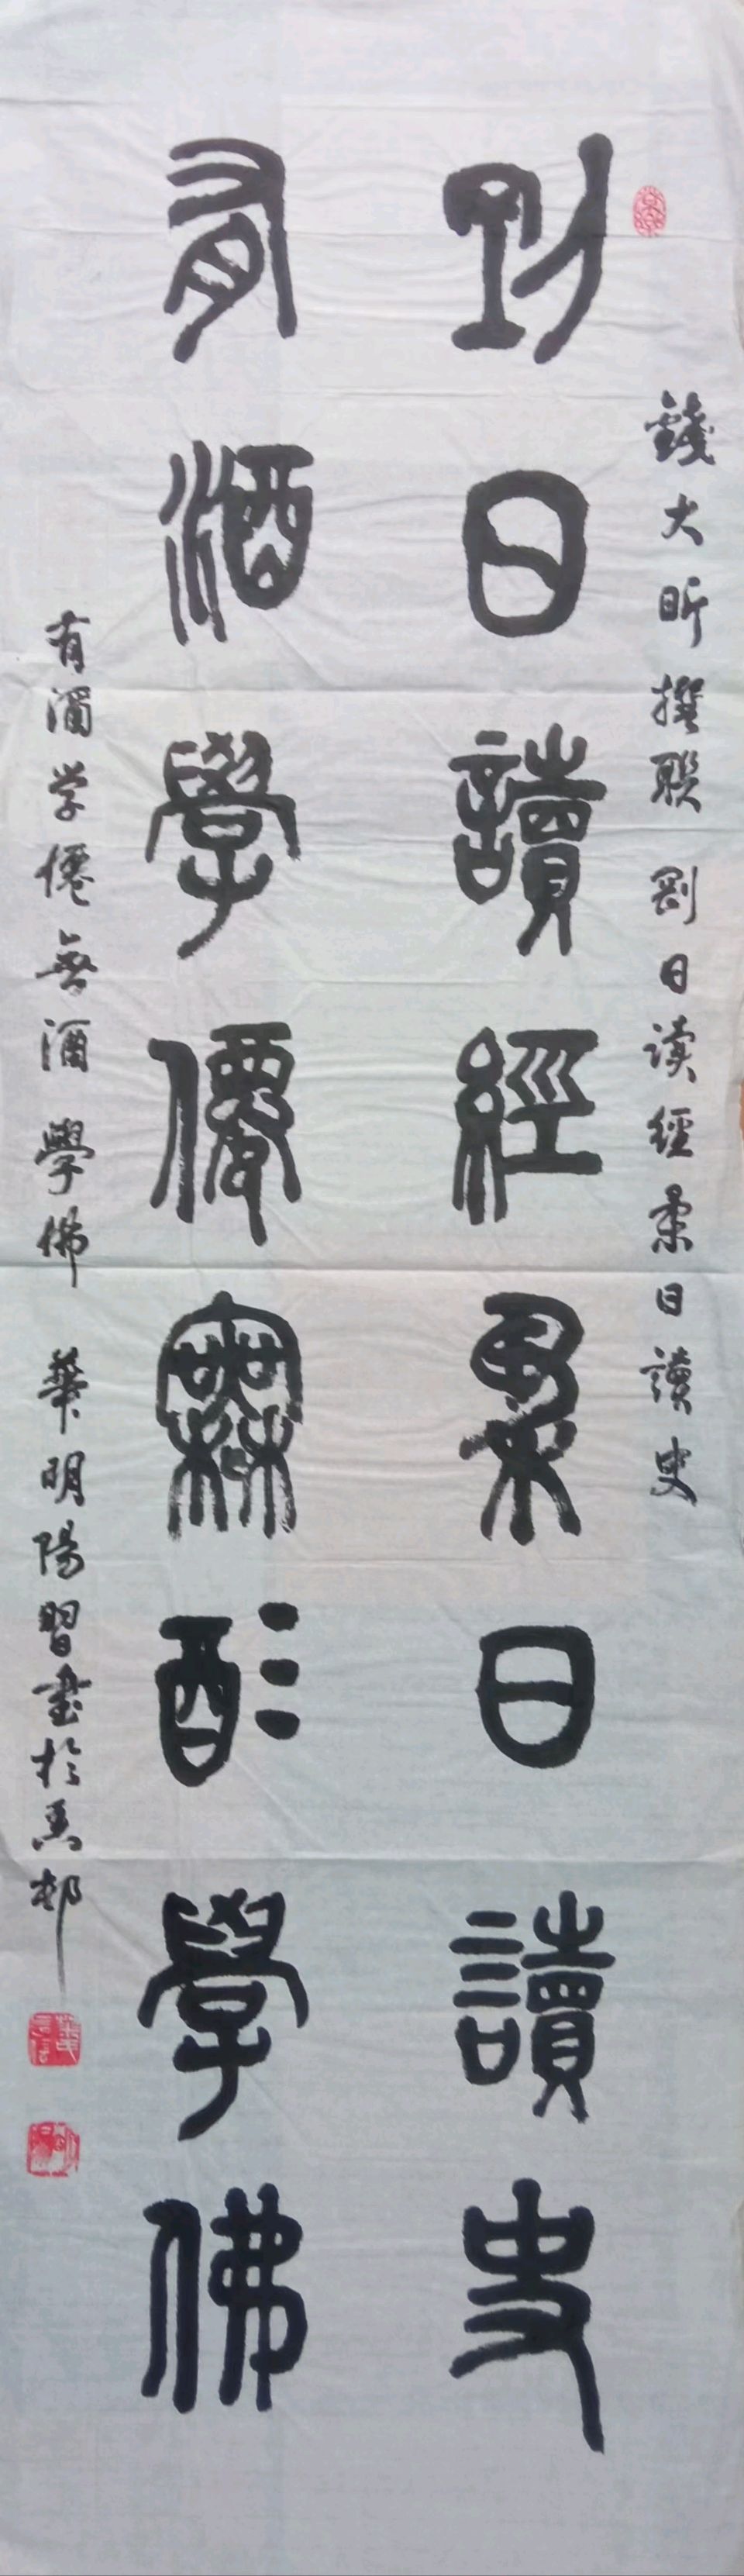 錢大昕撰聯 剛日读經柔日讀史
剛日讀經柔日讀史
有酒學僊無酒學佛
有酒学僊無酒學佛 華明陽習書於馬邨